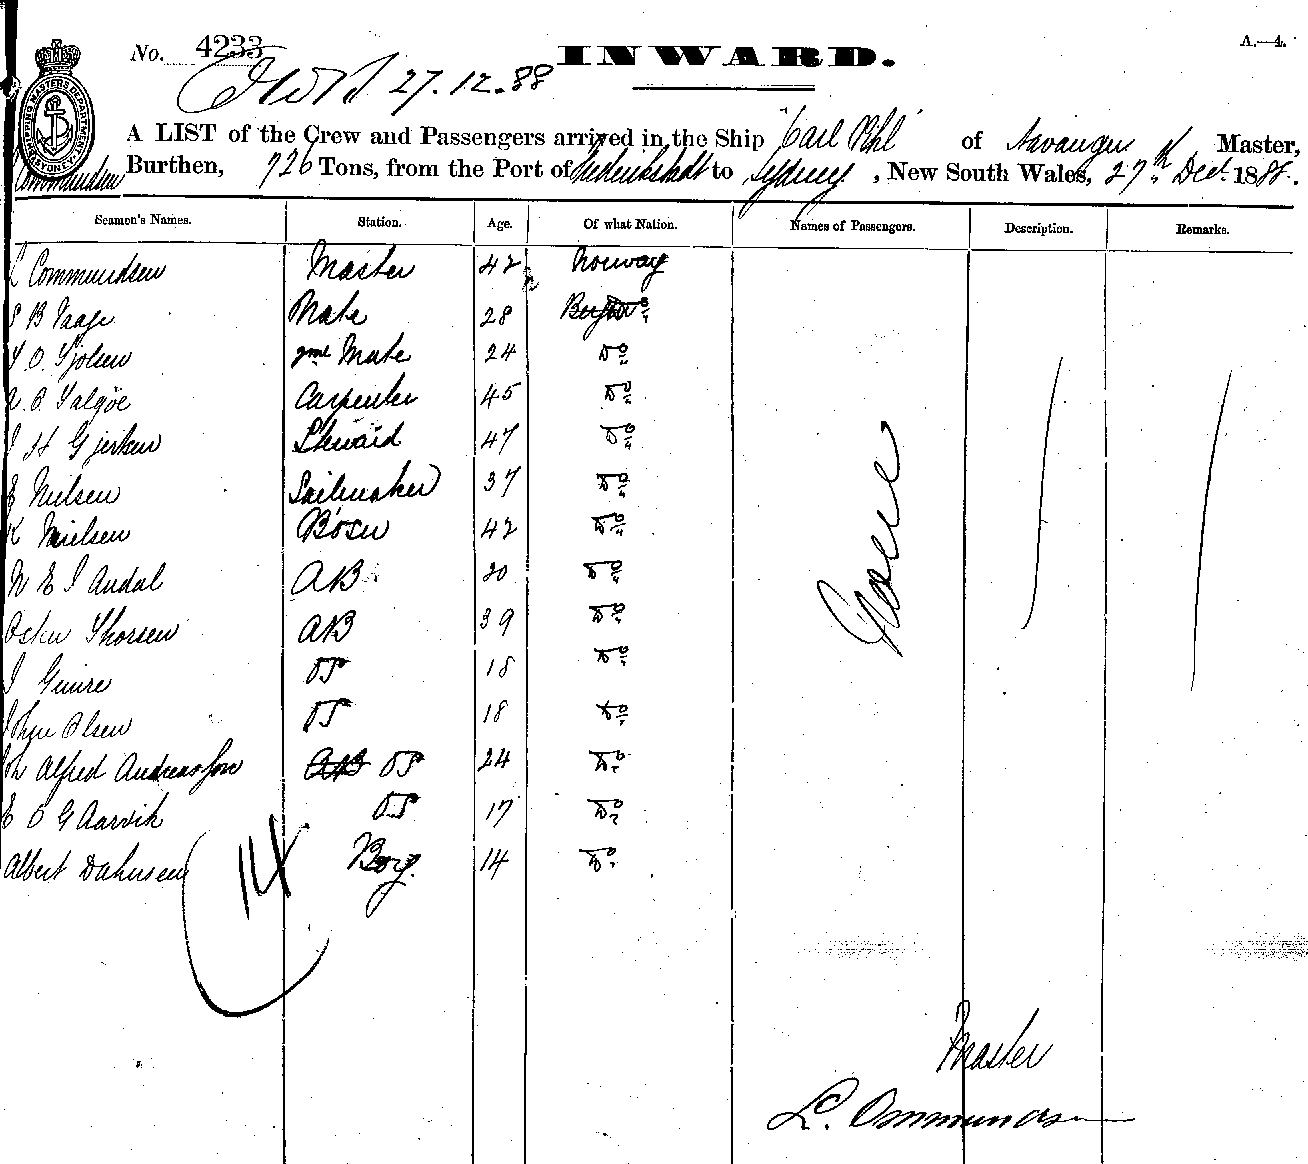 No. 4233
INWARD.
A.—4.
27.12.88
SHIPPING MASTERS DEPARTMENT SYDNEY
A LIST of the Crew and Passengers arrived in the Ship "Carl Pihl" of Stavanger Master,
Burthen, 726 Tons, from the Port of Frederikstadt to Sydney, New South Wales, 27th Dec. 1888.
Seamen's Names. Station. Age. Of what Nation. Names of Passengers. Description. Remarks.
L Commundsen Master 42 Norway
B Vaage Mate 28 Do
O. Mate 24 Do
Carpenter 45 Do
H Steward 47 Do
E Nielsen Sailmaker 37 Do
K Nielsen Bosn 42 Do
E I Audal AB 20 Do
Thorsen AB 39 Do
OS 18 Do
John Olsen OS 18 Do
Joh Alfred Andreasson AB OS 24 Do
E O G Aarvik OS 17 Do
Albert Dahnsen Boy. 14 Do
14
Master
L. Ommundsen